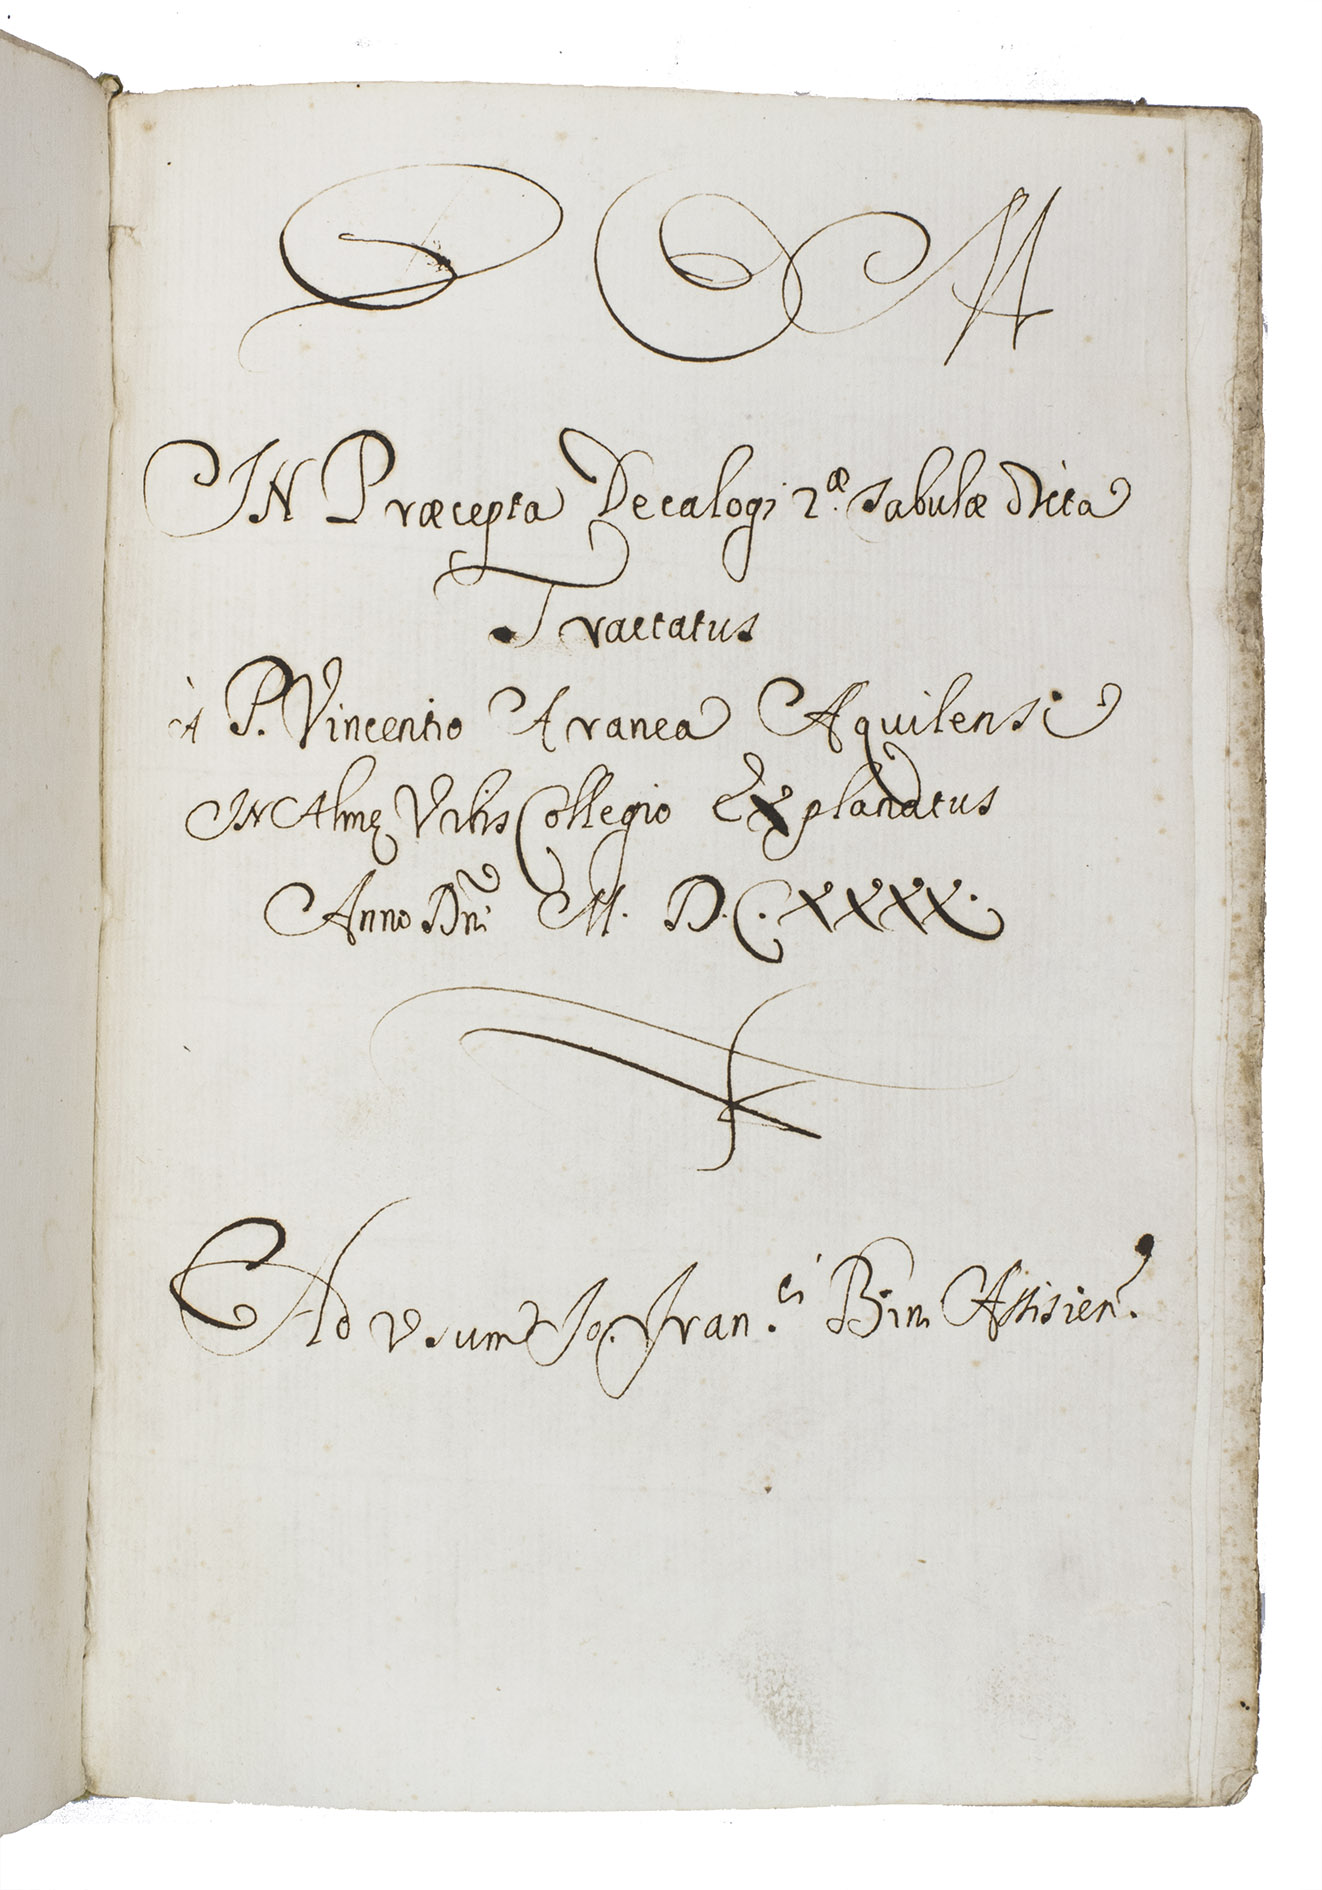 IN Præcepta Decalogi 2.æ tabulæ dicta
Tractatus
à P. Vincentio Aranea Aquilensi
IN Almę Vrbis Collegio Explanatus
Anno Dni M. D.C. XXXX.
Ad Vsum Jo. Fran.ci Bini Assisien.